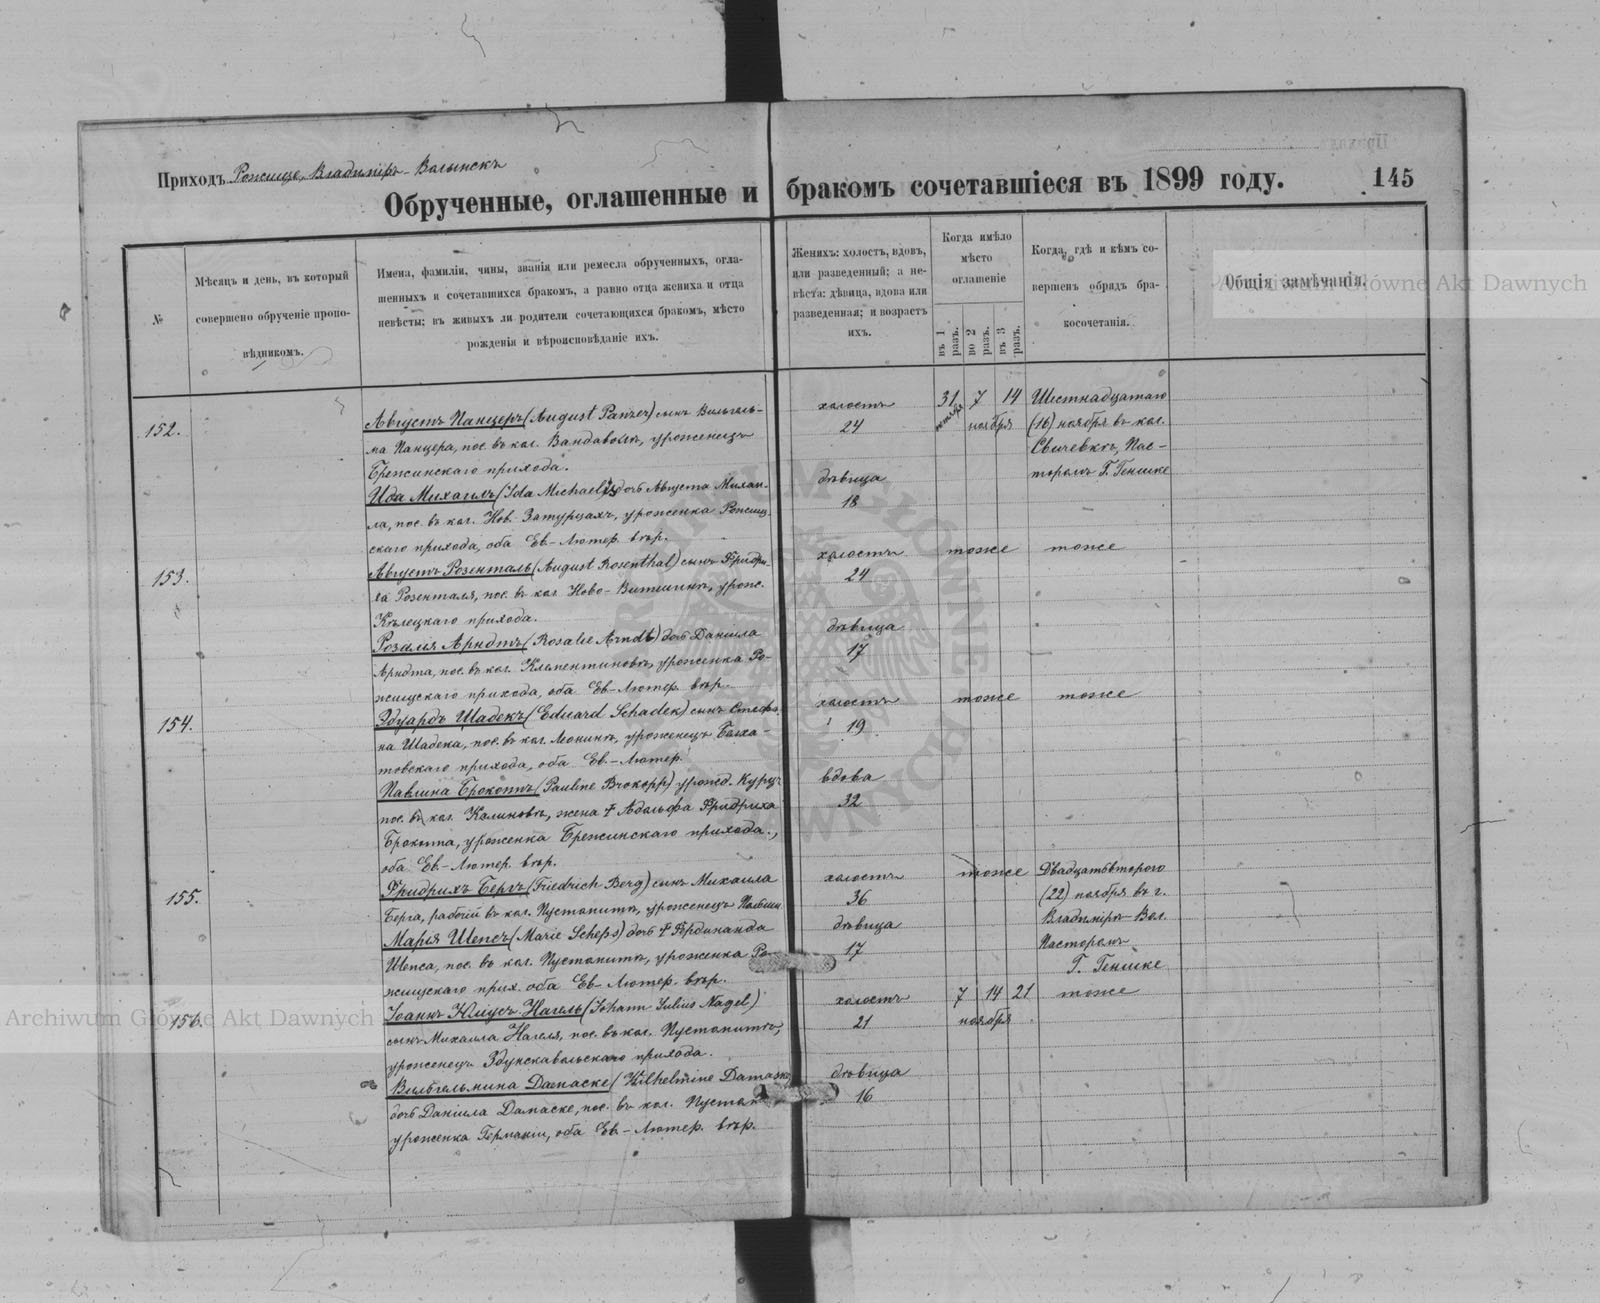 Приходъ Рожище-Владиміръ-Волынскъ
Обрученные, оглашенные и бракомъ сочетавшіеся въ 1899 году.
145
№
Мѣсяцъ и день, въ который
совершено обрученіе пропо-
вѣдникомъ.
Имена, фамиліи, чины, званія или ремесла обрученныхъ, огла-
шенныхъ и сочетавшихся бракомъ, а равно отца жениха и отца
невѣсты; въ живыхъ ли родители сочетающихся бракомъ, мѣсто
рожденія и вѣроисповѣданіе ихъ.
Женихъ: холостъ, вдовъ,
или разведенный; а не-
вѣста: дѣвица, вдова или
разведенная; и возрастъ
ихъ.
Когда имѣло
мѣсто
оглашеніе
въ 1 разъ.
во 2 разъ.
въ 3 разъ.
Когда, гдѣ и кѣмъ со-
вершенъ обрядъ бра-
косочетанія.
Общія замѣчанія.
Archiwum Główne Akt Dawnych
152.
Августъ Панцеръ (August Panzer) сынъ Вильгель-
ма Панцера, пос. въ кол. Вандаволѣ, уроженецъ
Брежинскаго прихода.
Ида Михаелъ (Ida Michaelis) дочь Августа Михаи-
ла, пос. въ кол. Нов. Затурцахъ, уроженка Рожищ-
скаго прихода, оба Ев.-Лютер. вѣр.
холостъ
24
дѣвица
18
31 7 14
октября ноября
Шестнадцатаго
(16) ноября въ кол.
Свичевкѣ, Пас-
торомъ Г. Генике
153.
Августъ Розенталь (August Rosenthal) сынъ Фридри-
ха Розенталя, пос. въ кол. Ново-, урож.
Кѣлецкаго прихода.
Розалія Арндтъ (Rosalie Arndt) дочь Даніила
Арндта, пос. въ кол. Клементиновкѣ, уроженка Ро-
жищскаго прихода, оба Ев.-Лютер. вѣр.
холостъ
24
дѣвица
17
тоже
тоже
154.
Эдуардъ Шадекъ (Eduard Schadek) сынъ Стефа-
на Шадека, пос. въ кол. Леонинѣ, уроженецъ Белха-
товскаго прихода, оба Ев.-Лютер.
Павлина Брокоппъ (Pauline Brokopp) урожд. Курцъ
пос. въ кол. Калиновкѣ, жена † Адольфа Фридриха
Брокоппа, уроженка Брежинскаго прихода.,
оба Ев.-Лютер. вѣр.
холостъ
19
вдова
32
тоже
тоже
155.
Фридрихъ Бергъ (Friedrich Berg) сынъ Михаила
Берга, рабочій въ кол. Пустомиткѣ, уроженецъ Польши
Марія Шепсъ (Marie Scheps) дочь † Фердинанда
Шепса, пос. въ кол. Пустомиткѣ, уроженка Ро-
жищскаго прих. оба Ев.-Лютер. вѣр.
холостъ
36
дѣвица
17
тоже
Двадцатьвторого
(22) ноября въ г.
Владиміръ-Вол.
Пасторомъ
Г. Генике
156.
Іоаннъ Юліусъ Нагель (Johann Julius Nagel)
сынъ Михаила Нагеля, пос. въ кол. Пустомиткѣ,
уроженецъ Здунскавольскаго прихода.
Вильгельмина Дамаске (Wilhelmine Damaske)
дочь Даніила Дамаске, пос. въ кол.
уроженка Германіи, оба Ев.-Лютер. вѣр.
холостъ
21
дѣвица
16
7 14 21
ноября
тоже
Archiwum Główne Akt Dawnych